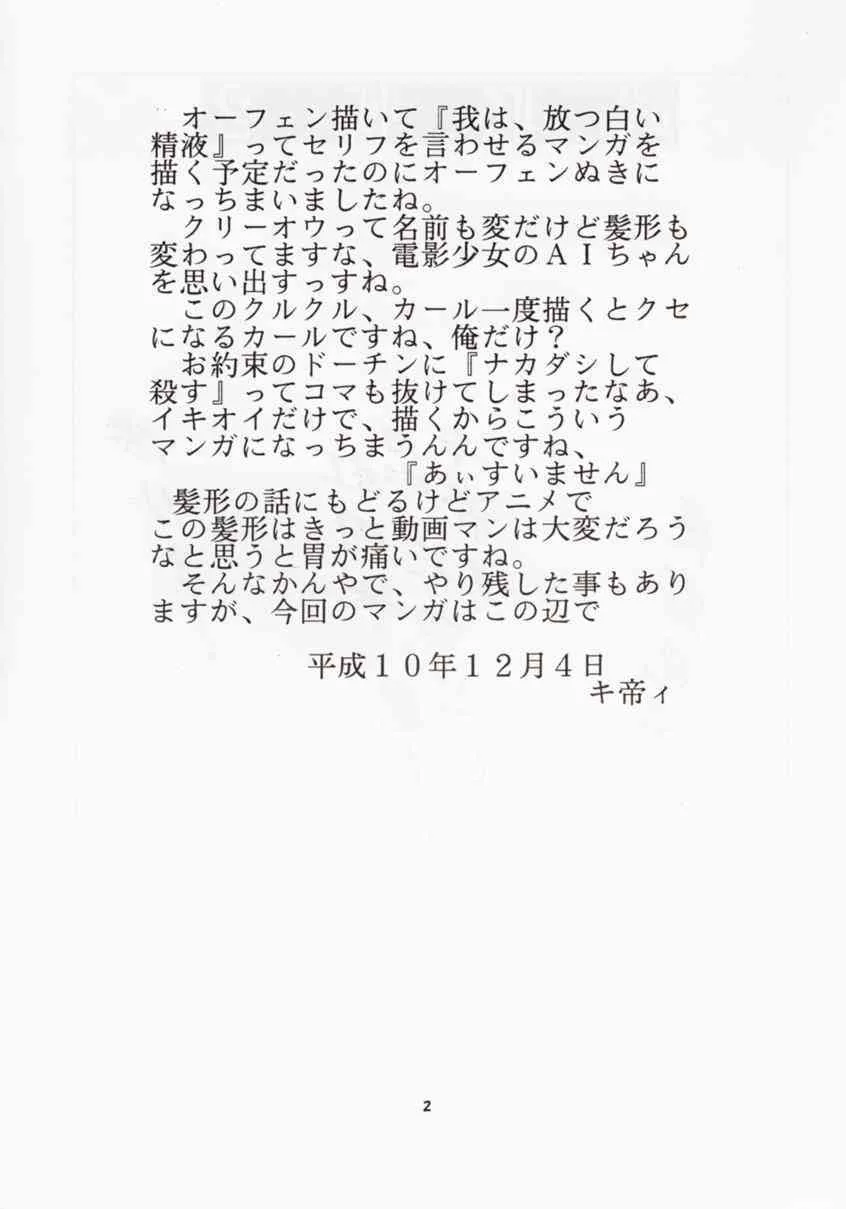 オーフェン描いて『我は、放つ白い
精液』ってセリフを言わせるマンガを
描く予定だったのにオーフェンぬきに
なっちまいましたね。
クリーオウって名前も変だけど髪形も
変わってますな、電影少女のＡＩちゃん
を思い出すっすね。
このクルクル、カール一度描くとクセ
になるカールですね、俺だけ？
お約束のドーチンに『ナカダシして
殺す』ってコマも抜けてしまったなあ、
イキオイだけで、描くからこういう
マンガになっちまうんんですね、
『あぃすいません』
髪形の話にもどるけどアニメで
この髪形はきっと動画マンは大変だろう
なと思うと胃が痛いですね。
そんなかんやで、やり残した事もあり
ますが、今回のマンガはこの辺で
平成１０年１２月４日
キ帝ィ
2